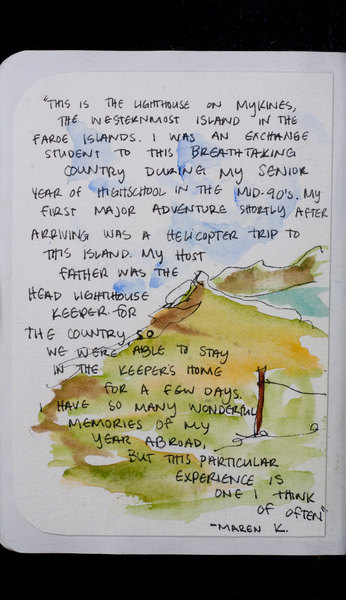 "THIS IS THE LIGHTHOUSE ON MYKINES,
THE WESTERNMOST ISLAND IN THE
FAROE ISLANDS. I WAS AN EXCHANGE
STUDENT TO THIS BREATHTAKING
COUNTRY DURING MY SENIOR
YEAR OF HIGHSCHOOL IN THE MID-90'S. MY
FIRST MAJOR ADVENTURE SHORTLY AFTER
ARRIVING WAS A HELICOPTER TRIP TO
THIS ISLAND. MY HOST
FATHER WAS THE
HEAD LIGHTHOUSE
KEEPER FOR
THE COUNTRY, SO
WE WERE ABLE TO STAY
IN THE KEEPER'S HOME
FOR A FEW DAYS.
I HAVE SO MANY WONDERFUL
MEMORIES OF MY
YEAR ABROAD,
BUT THIS PARTICULAR
EXPERIENCE IS
ONE I THINK
OF OFTEN"
-MAREN K.